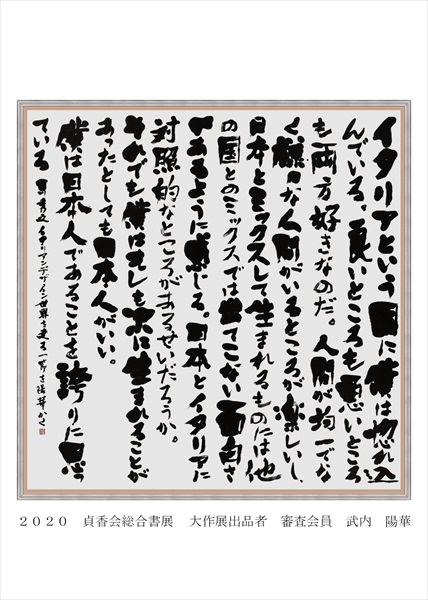 イタリアという国に僕は惚れ込
んでいる、良いところも悪いところ
も両方好きなのだ。人間が均一でな
く、様々な人間がいるところが楽しいし、
日本とミックスして生まれるものには他
の国とのミックスでは出てこない面白さ
があるように感じる。日本とイタリアに
対照的なところがあるせいだろうか。
それでも僕はもしも次に生まれることが
あったとしても日本人がいい。
僕は日本人であることを誇りに思っ
ている
イタリアンデザイン世界を走る一節を陽華かく
2020 貞香会総合書展 大作展出品者 審査会員 武内 陽華